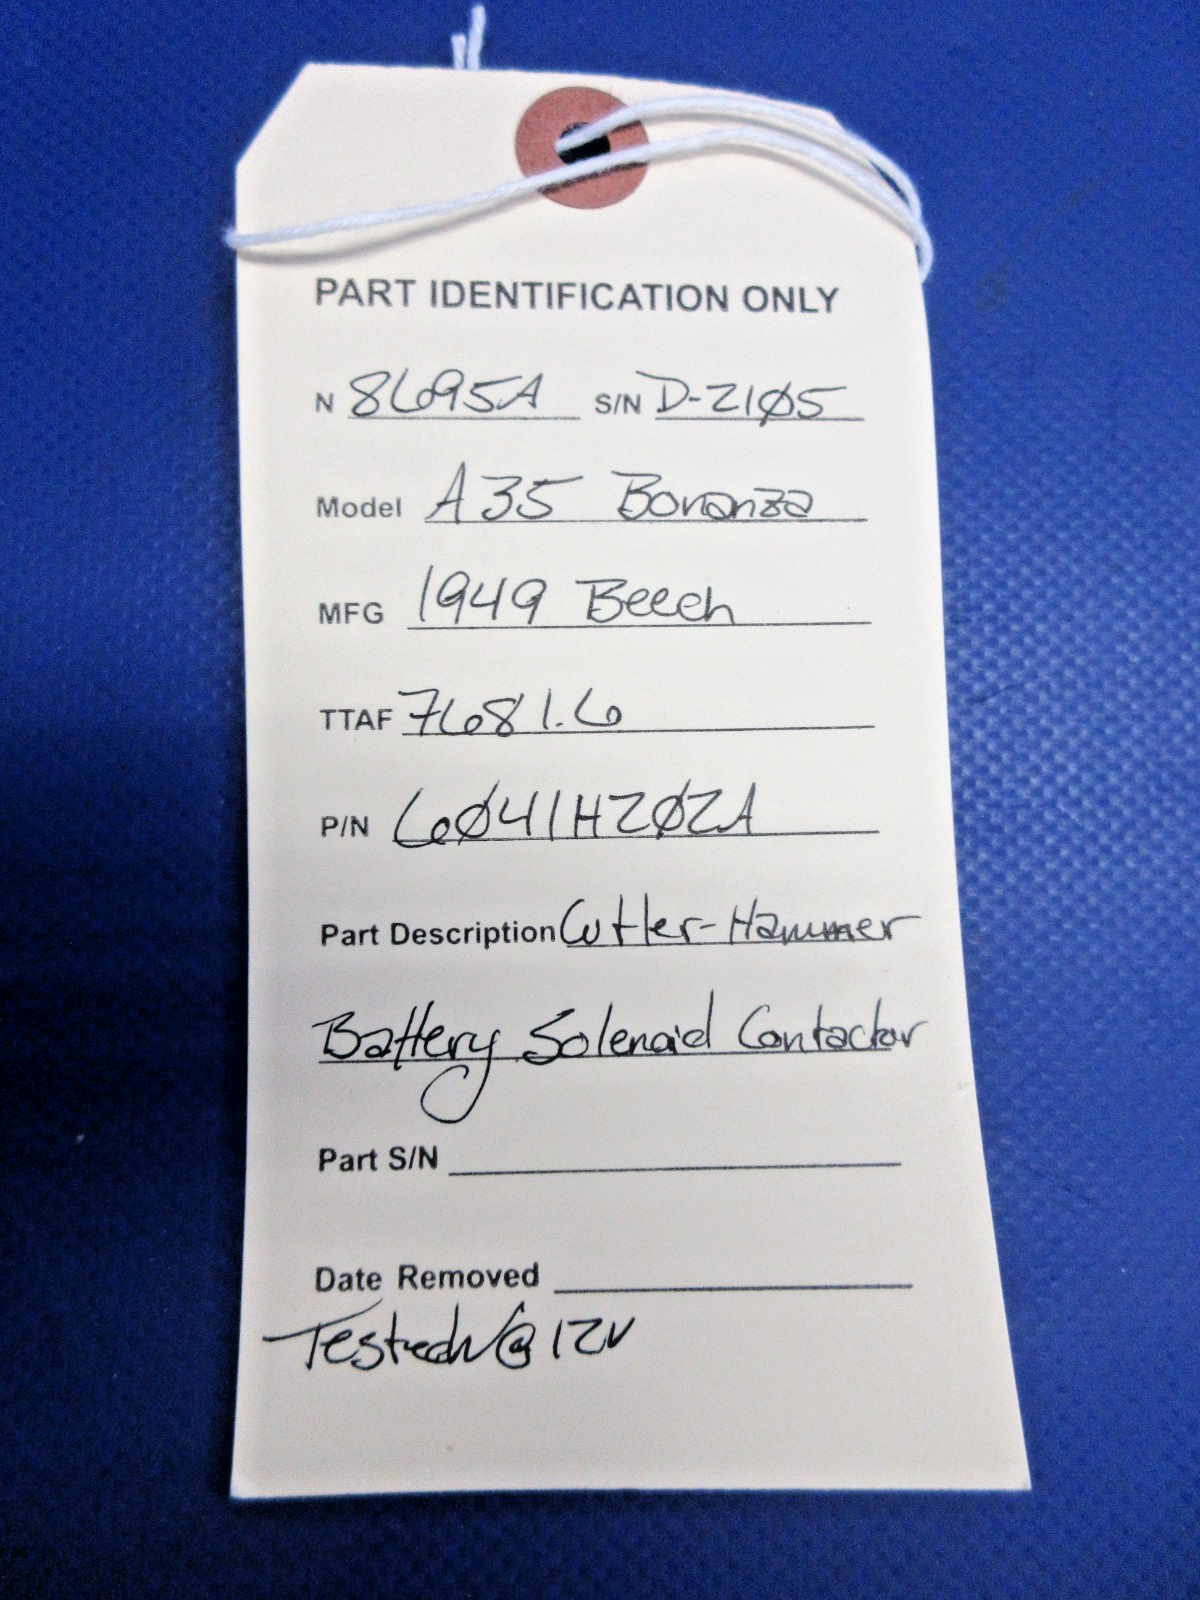 PART IDENTIFICATION ONLY
N 8695A S/N D-21Ø5
Model A35 Bonanza
MFG 1949 Beech
TTAF 7681.6
P/N 6Ø41H2Ø2A
Part Description Cutler-Hammer
Battery Solenoid Contactor
Part S/N
Date Removed
Tested @ 12V